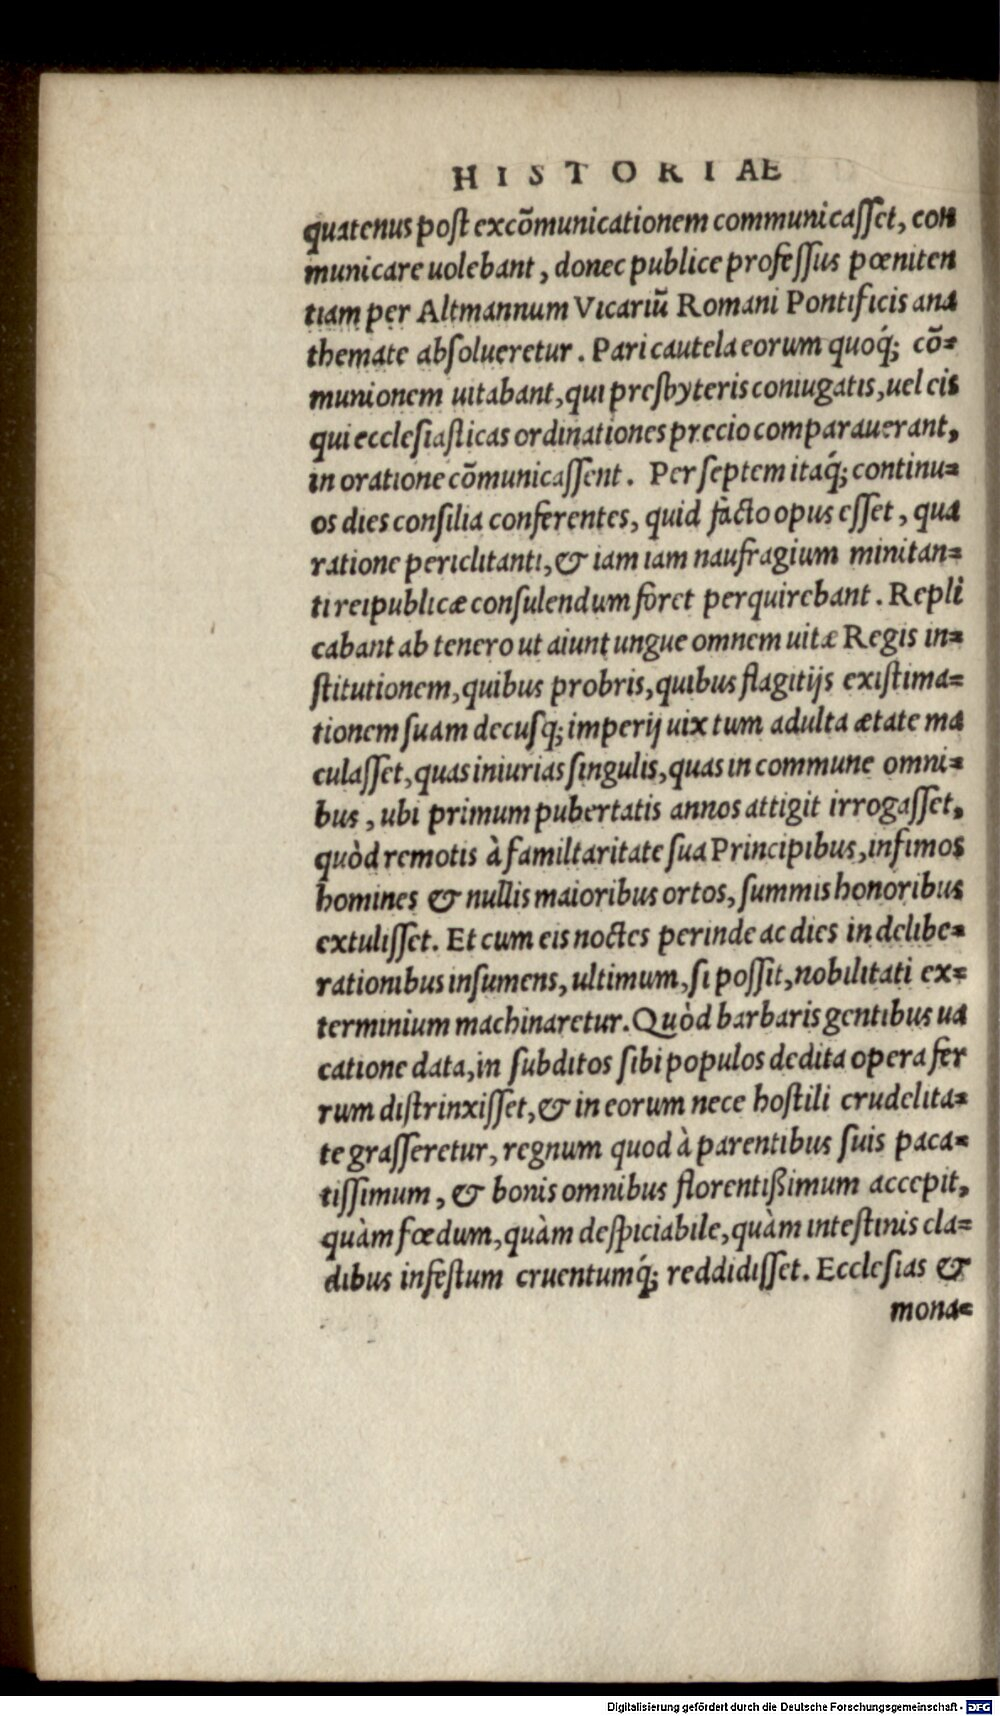 HISTORIAE
quatenus post excõmunicationem communicasset, con
municare uolebant, donec publice professus pœniten
tiam per Altmannum Vicariũ Romani Pontificis ana
themate absolueretur. Pari cautela eorum quoq́; cõ=
munionem uitabant, qui presbyteris coniugatis, uel eis
qui ecclesiasticas ordinationes precio comparauerant,
in oratione cõmunicassent. Per septem itaq́; continu=
os dies consilia conferentes, quid facto opus esset, qua
ratione periclitanti, & iam iam naufragium minitan=
ti reipublicæ consulendum foret perquirebant. Repli
cabant ab tenero ut aiunt ungue omnem uitæ Regis in=
stitutionem, quibus probris, quibus flagitijs existima=
tionem suam decusq; imperij uix tum adulta ætate ma
culasset, quas iniurias singulis, quas in commune omni=
bus, ubi primum pubertatis annos attigit irrogasset,
quòd remotis à familtaritate sua Principibus, infimos
homines & nullis maioribus ortos, summis honoribus
extulisset. Et cum eis noctes perinde ac dies in delibe=
rationibus insumens, ultimum, si possit, nobilitati ex=
terminium machinaretur. Quòd barbaris gentibus ua
catione data, in subditos sibi populos dedita opera fer
rum distrinxisset, & in eorum nece hostili crudelita=
te grasseretur, regnum quod à parentibus suis paca=
tissimum, & bonis omnibus florentißimum accepit,
quàm fœdum, quàm despiciabile, quàm intestinis cla=
dibus infestum cruentumq́; reddidisset. Ecclesias &
mona=
Digitalisierung gefördert durch die Deutsche Forschungsgemeinschaft - DFG